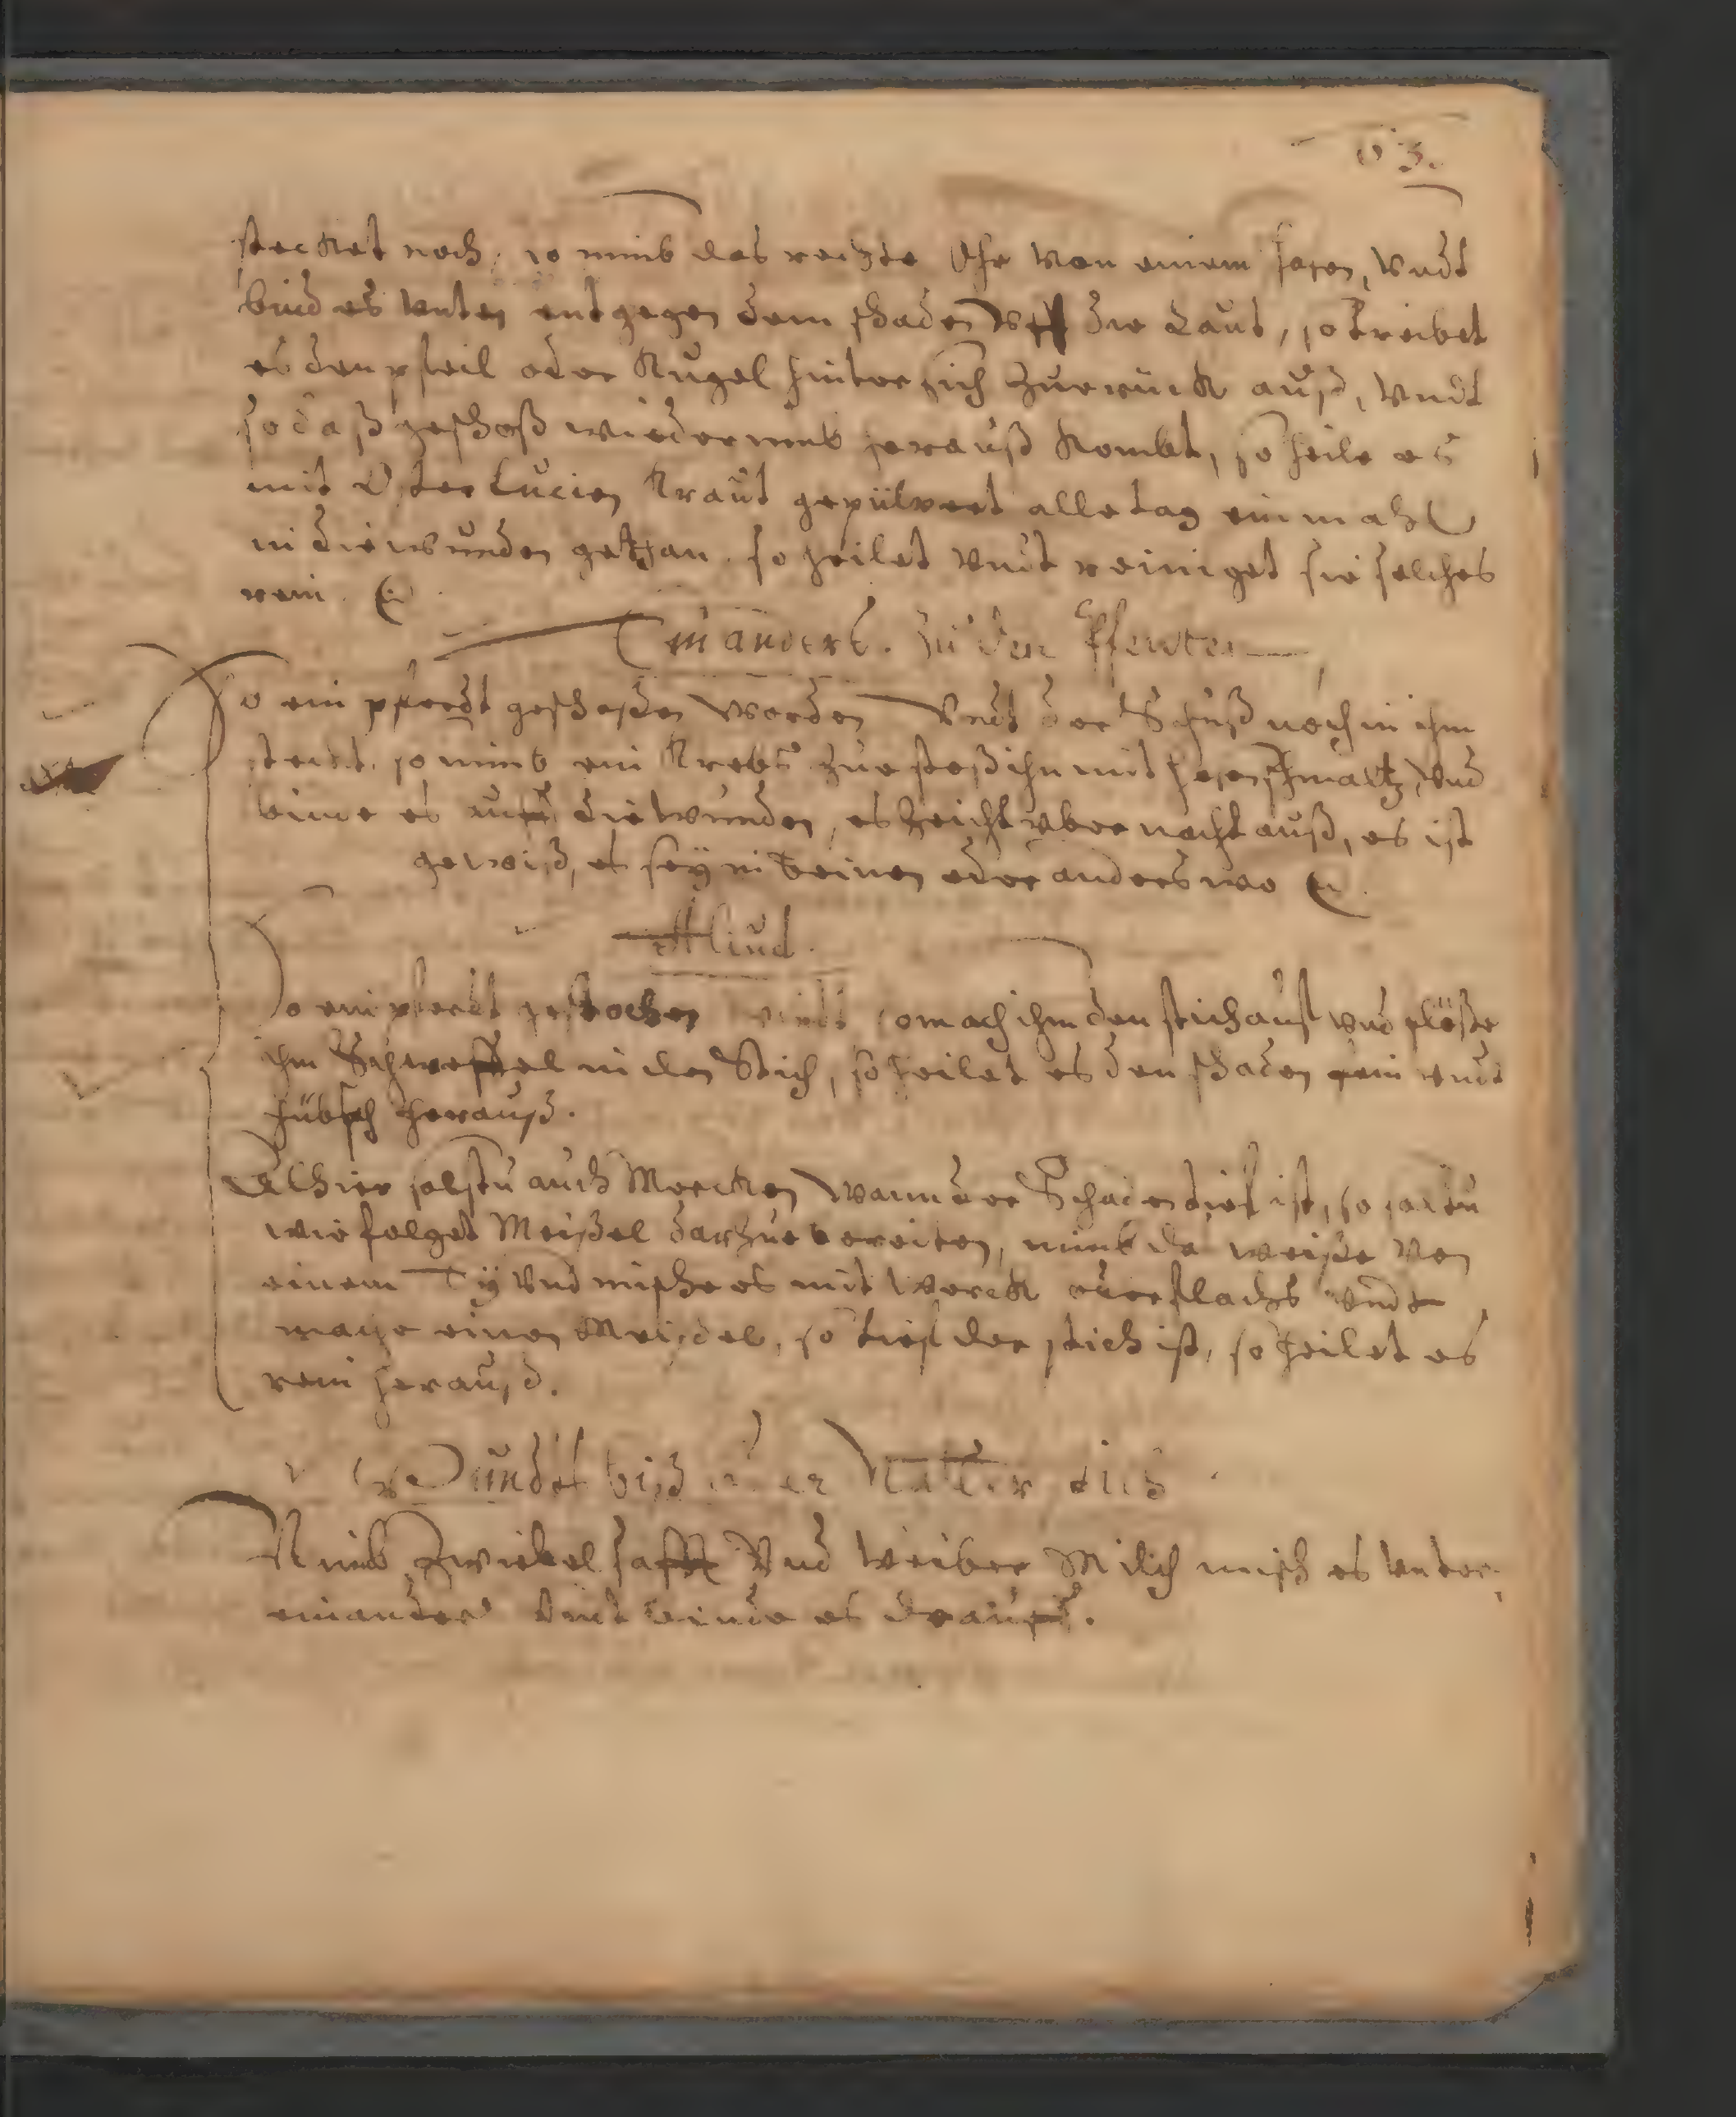 63.
stecket noch, so nimb das rechte Ohr von einem Hasen, Vndt
bind es vnten entgegen dem schaden vff die Haut, so treibet
es den pfeil oder Kugel hinter sich zuerück auß, Vndt
so daß geschoß wiederumb herauß Kombt, so heile es
mit Oster Lucien Kraut gepülvert alle tag ein mahl
in die wunden gethan so heilet Vndt reiniget sie solches
rein.
Ein anders. Zu den Pferten
So ein pferdt geschoßen worden Vndt der Schuß noch in ihm
steckt, so nimb ein Krebs zuestoß ihn mit Hasenschmaltz, Vnd
binde es auff die Wunden, es zeicht vber nacht auß, es ist
gewiß, es sey in beinen oder anders wo
Aliud.
So ein pferdt gestochen wirdt so mach ihm den stich auf vnd flöße
ihm Schweffel in den Stich, so heilet es den schaden rein vndt
hübsch herauß.
Alhier solstu auch Mercken Wann der Schaden tief ist, so soltu
wie folget Meißel darzue bereiten, nimb das weiße Von
einem Ey Vnd mische es mit Werck oder flachs Vndt
mache einen Meißel, so tief der stich ist, so heilet es
rein herauß.
Hundts biß oder Natter stich
Nimb Zwiebel safft Vnd Weiber Milch misch es Vnter
einander Vndt binde es drauff.